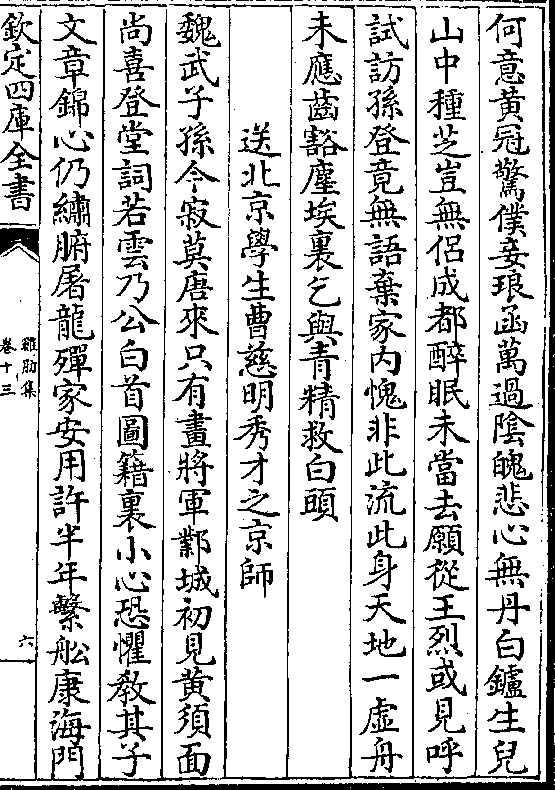 何意黃冠驚僕妾琅函萬過陰魄悲心無丹白鑪生兒
山中種芝豈無侣成都醉眠未當去願從王烈或見呼
試訪孫登竟無語棄家内愧非此流此身天地一虛舟
未應齒豁塵埃裏乞與青精救白頭
送北京學生曹慈明秀才之京師
魏武子孫今寂莫唐來只有畫將軍鄴城初見黃須面
尚喜登堂詞若雲乃公白首圖籍裏小心恐懼敎其子
文章錦心仍繡腑屠龍殫家安用許半年繫舩康海門
欽定四庫全書
雞肋集
卷十三
六